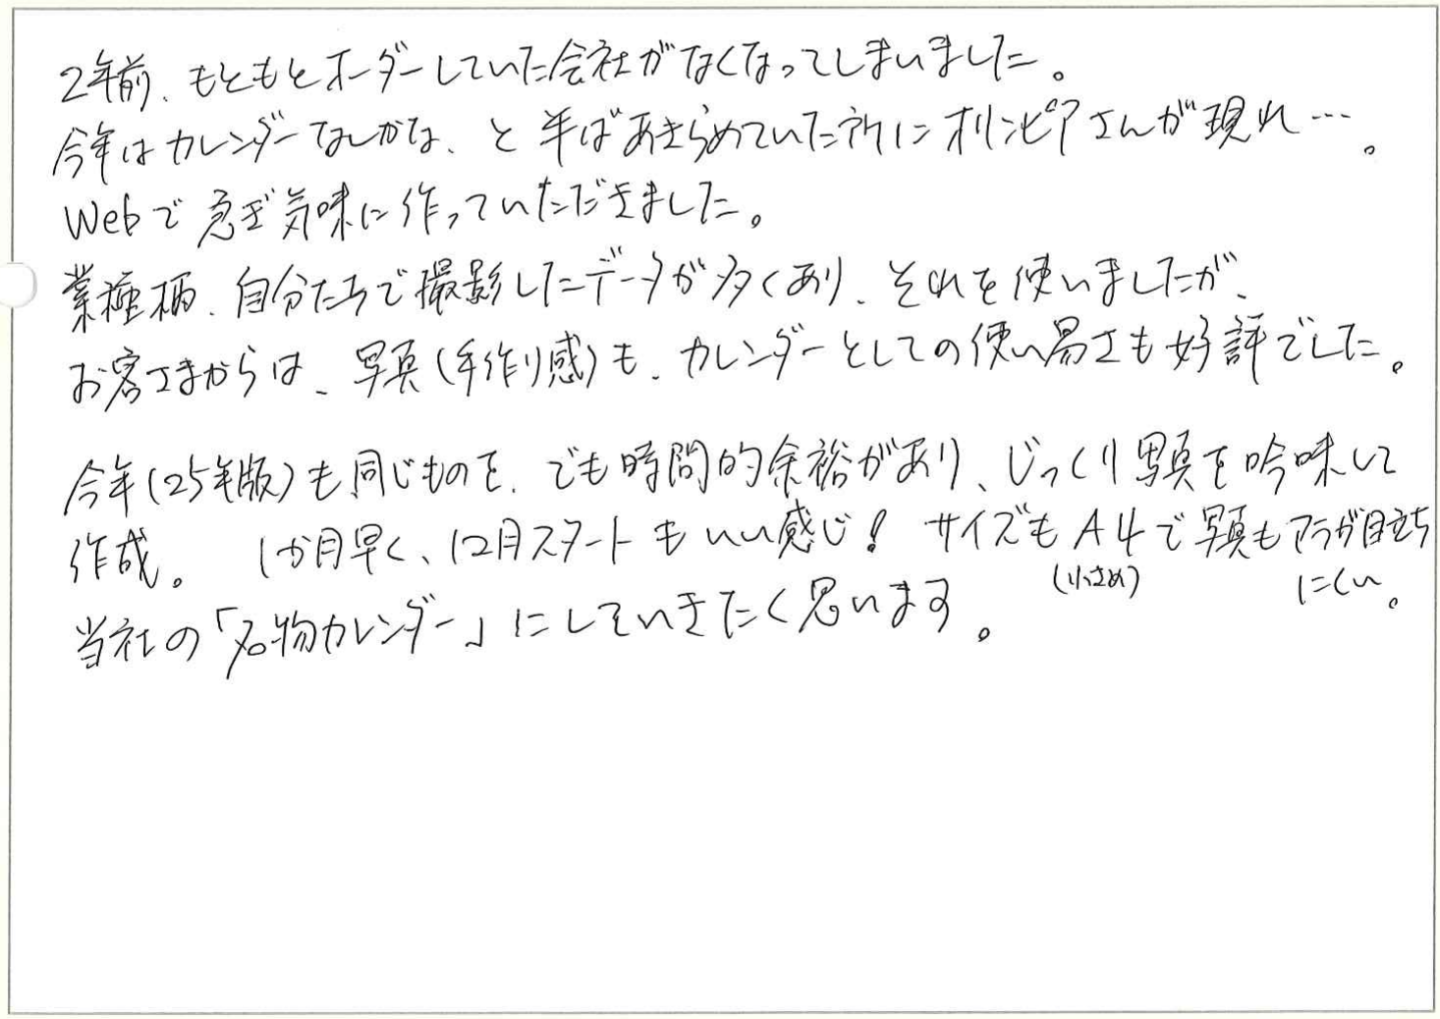 2年前、もともとオーダーしていた会社がなくなってしまいました。
今年はカレンダーなしかな、と半ばあきらめていた所にオリンピアさんが現れ…。
Webで急ぎ気味に作っていただきました。
業種柄、自分たちで撮影したデータが多くあり、それを使いましたが、
お客さまからは、写真(手作り感)も、カレンダーとしての使い易さも好評でした。
今年(25年版)も同じものを、でも時間的余裕があり、じっくり写真を吟味して
作成。 1か月早く、12月スタートもいい感じ! サイズもA4(小さめ)で写真もアラが目立ち
にくい。
当社の「名物カレンダー」にしていきたく思います。